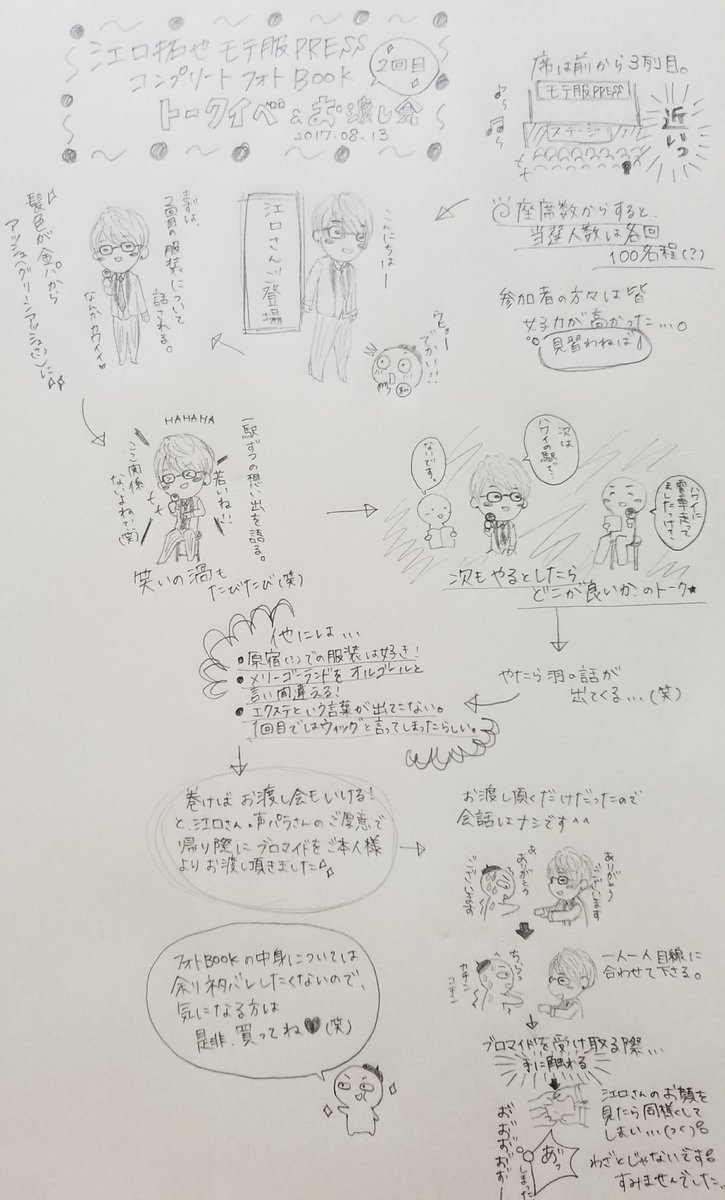 江口拓也 モテ服PRESS
コンプリートフォトBOOK
2回目
トークイベ&お渡し会
2017.08.13
席は前から3列目。
モテ服PRESS
ステージ
近いっ
座席数からすると、
当選人数は各回
100名程(?)
参加者の方々は皆
女子力が高かった…。
見習わねば!
こんにちはー
江口さんご登場
ウヒョー
でかい!!
まずは、
2回目の服装について
話される。
髪色が金パから
アッシュ(グリーンアッシュかな)に
なんかカワイイ
HAHAHA
一駅ずつの想い出を語る。
若いね!!
ここ関係
ないよね?!(笑)
笑いの渦も
たびたび(笑)
次は
ハワイの駅で…
ないです。
ハワイに
電車走って
ましたっけ?
次もやるとしたら
どこが良いか、のトーク★
やたら羽の話が
出てくる…(笑)
他には…
●原宿(?)での服装は好き!
●メリーゴーランドをオルゴールと
言い間違える!
●エクステという言葉が出てこない。
1回目ではウィッグと言ってしまったらしい。
巻けばお渡し会もいける!
と、江口さん・声パラさんのご厚意で
帰り際にブロマイドをご本人様
よりお渡し頂きました
お渡し頂くだけだったので
会話はナシです^^
ありがとう
ございます
あ
ありがとう
ございます
一人一人目線に
合わせて下さる。
ちらっ
カチン
コチン
ブロマイドを受け取る際…
手に触れる
フォトBOOKの中身については
余りネタバレしたくないので、
気になる方は
是非、買ってね♥(笑)
江口さんのお顔を
見たら同様して
しまい…
わざとじゃないです
すみませんでした。
あっ
しまった